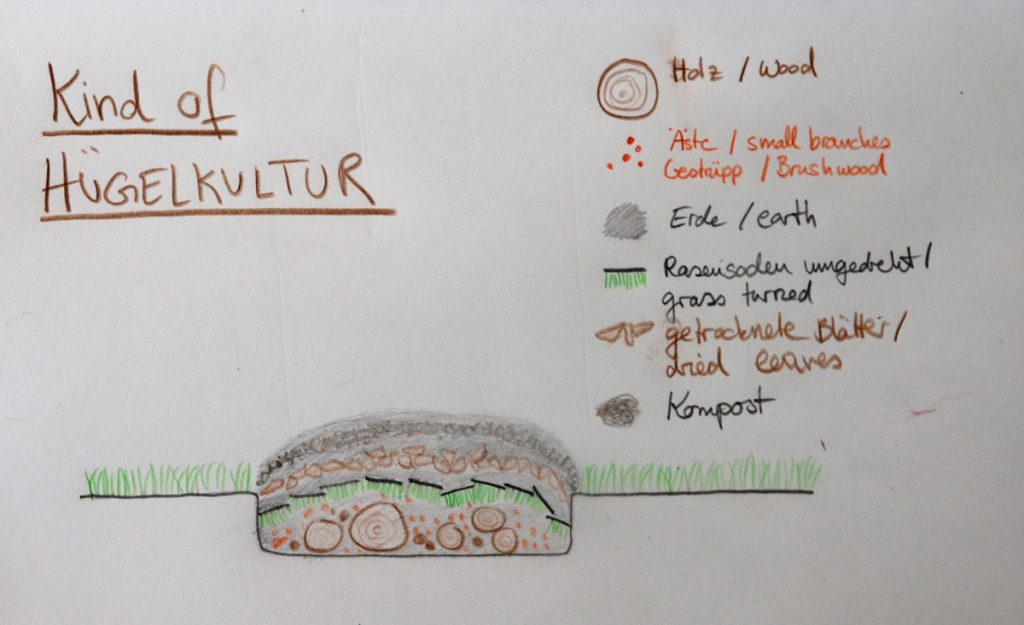 Kind of
HÜGELKULTUR
Holz / Wood
Äste / small branches
Gestrüpp / Brushwood
Erde / earth
Rasensoden umgedreht /
grass turned
getrocknete Blätter /
dried leaves
Kompost